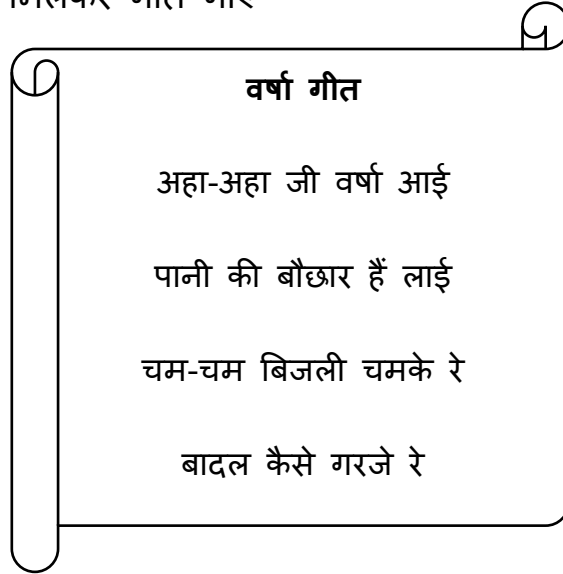 वर्षा गीत
अहा-अहा जी वर्षा आई
पानी की बौछार हैं लाई
चम-चम बिजली चमके रे
बादल कैसे गरजे रे